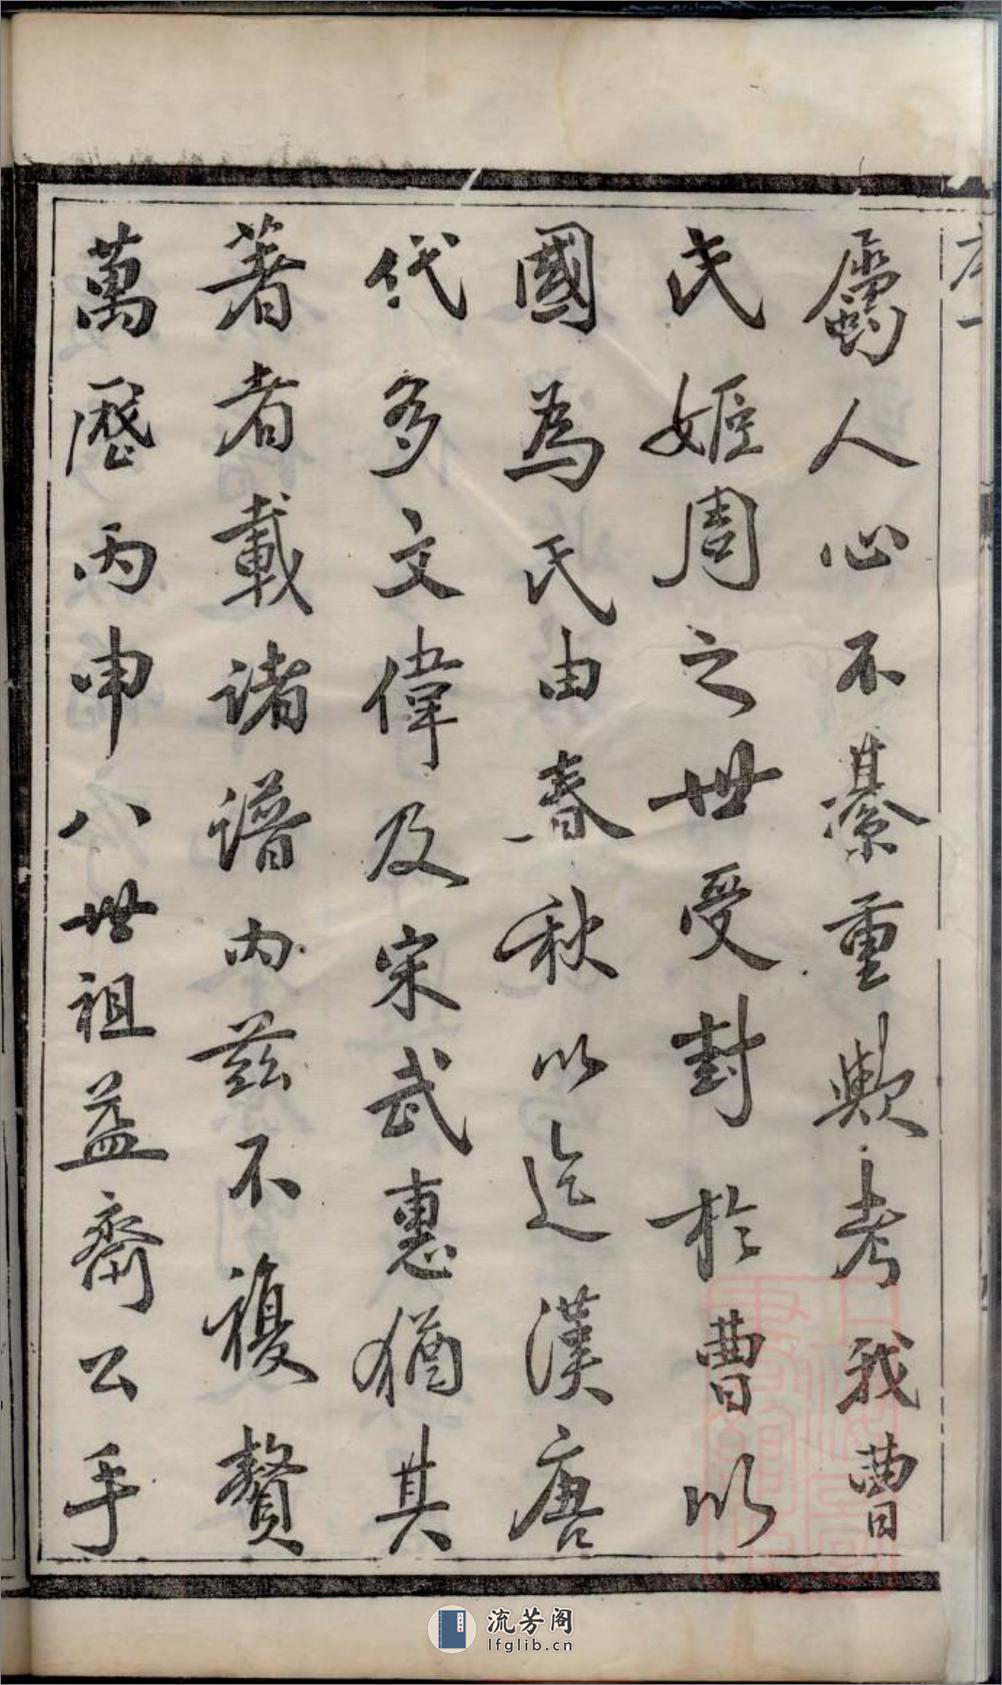 屬人心不綦重歟考我曹
氏姬周之世受封於曹以
國為氏由春秋以迄漢唐
代多文偉及宋武惠猶其
著者載諸譜內茲不複贅
萬歷丙申八世祖益齋公手
流芳阁
lfglib.cn